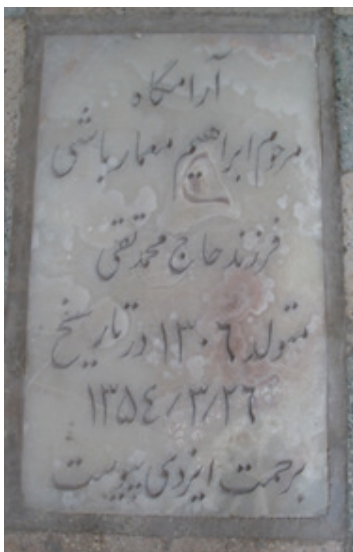 آرامگاه
مرحوم ابراهیم معمار باشی
فرزند حاج محمد تقی
متولد ۱۳۰۶ در تاریخ
۱۳۵۴/۳/۲۶
برحمت ایزدی پیوست